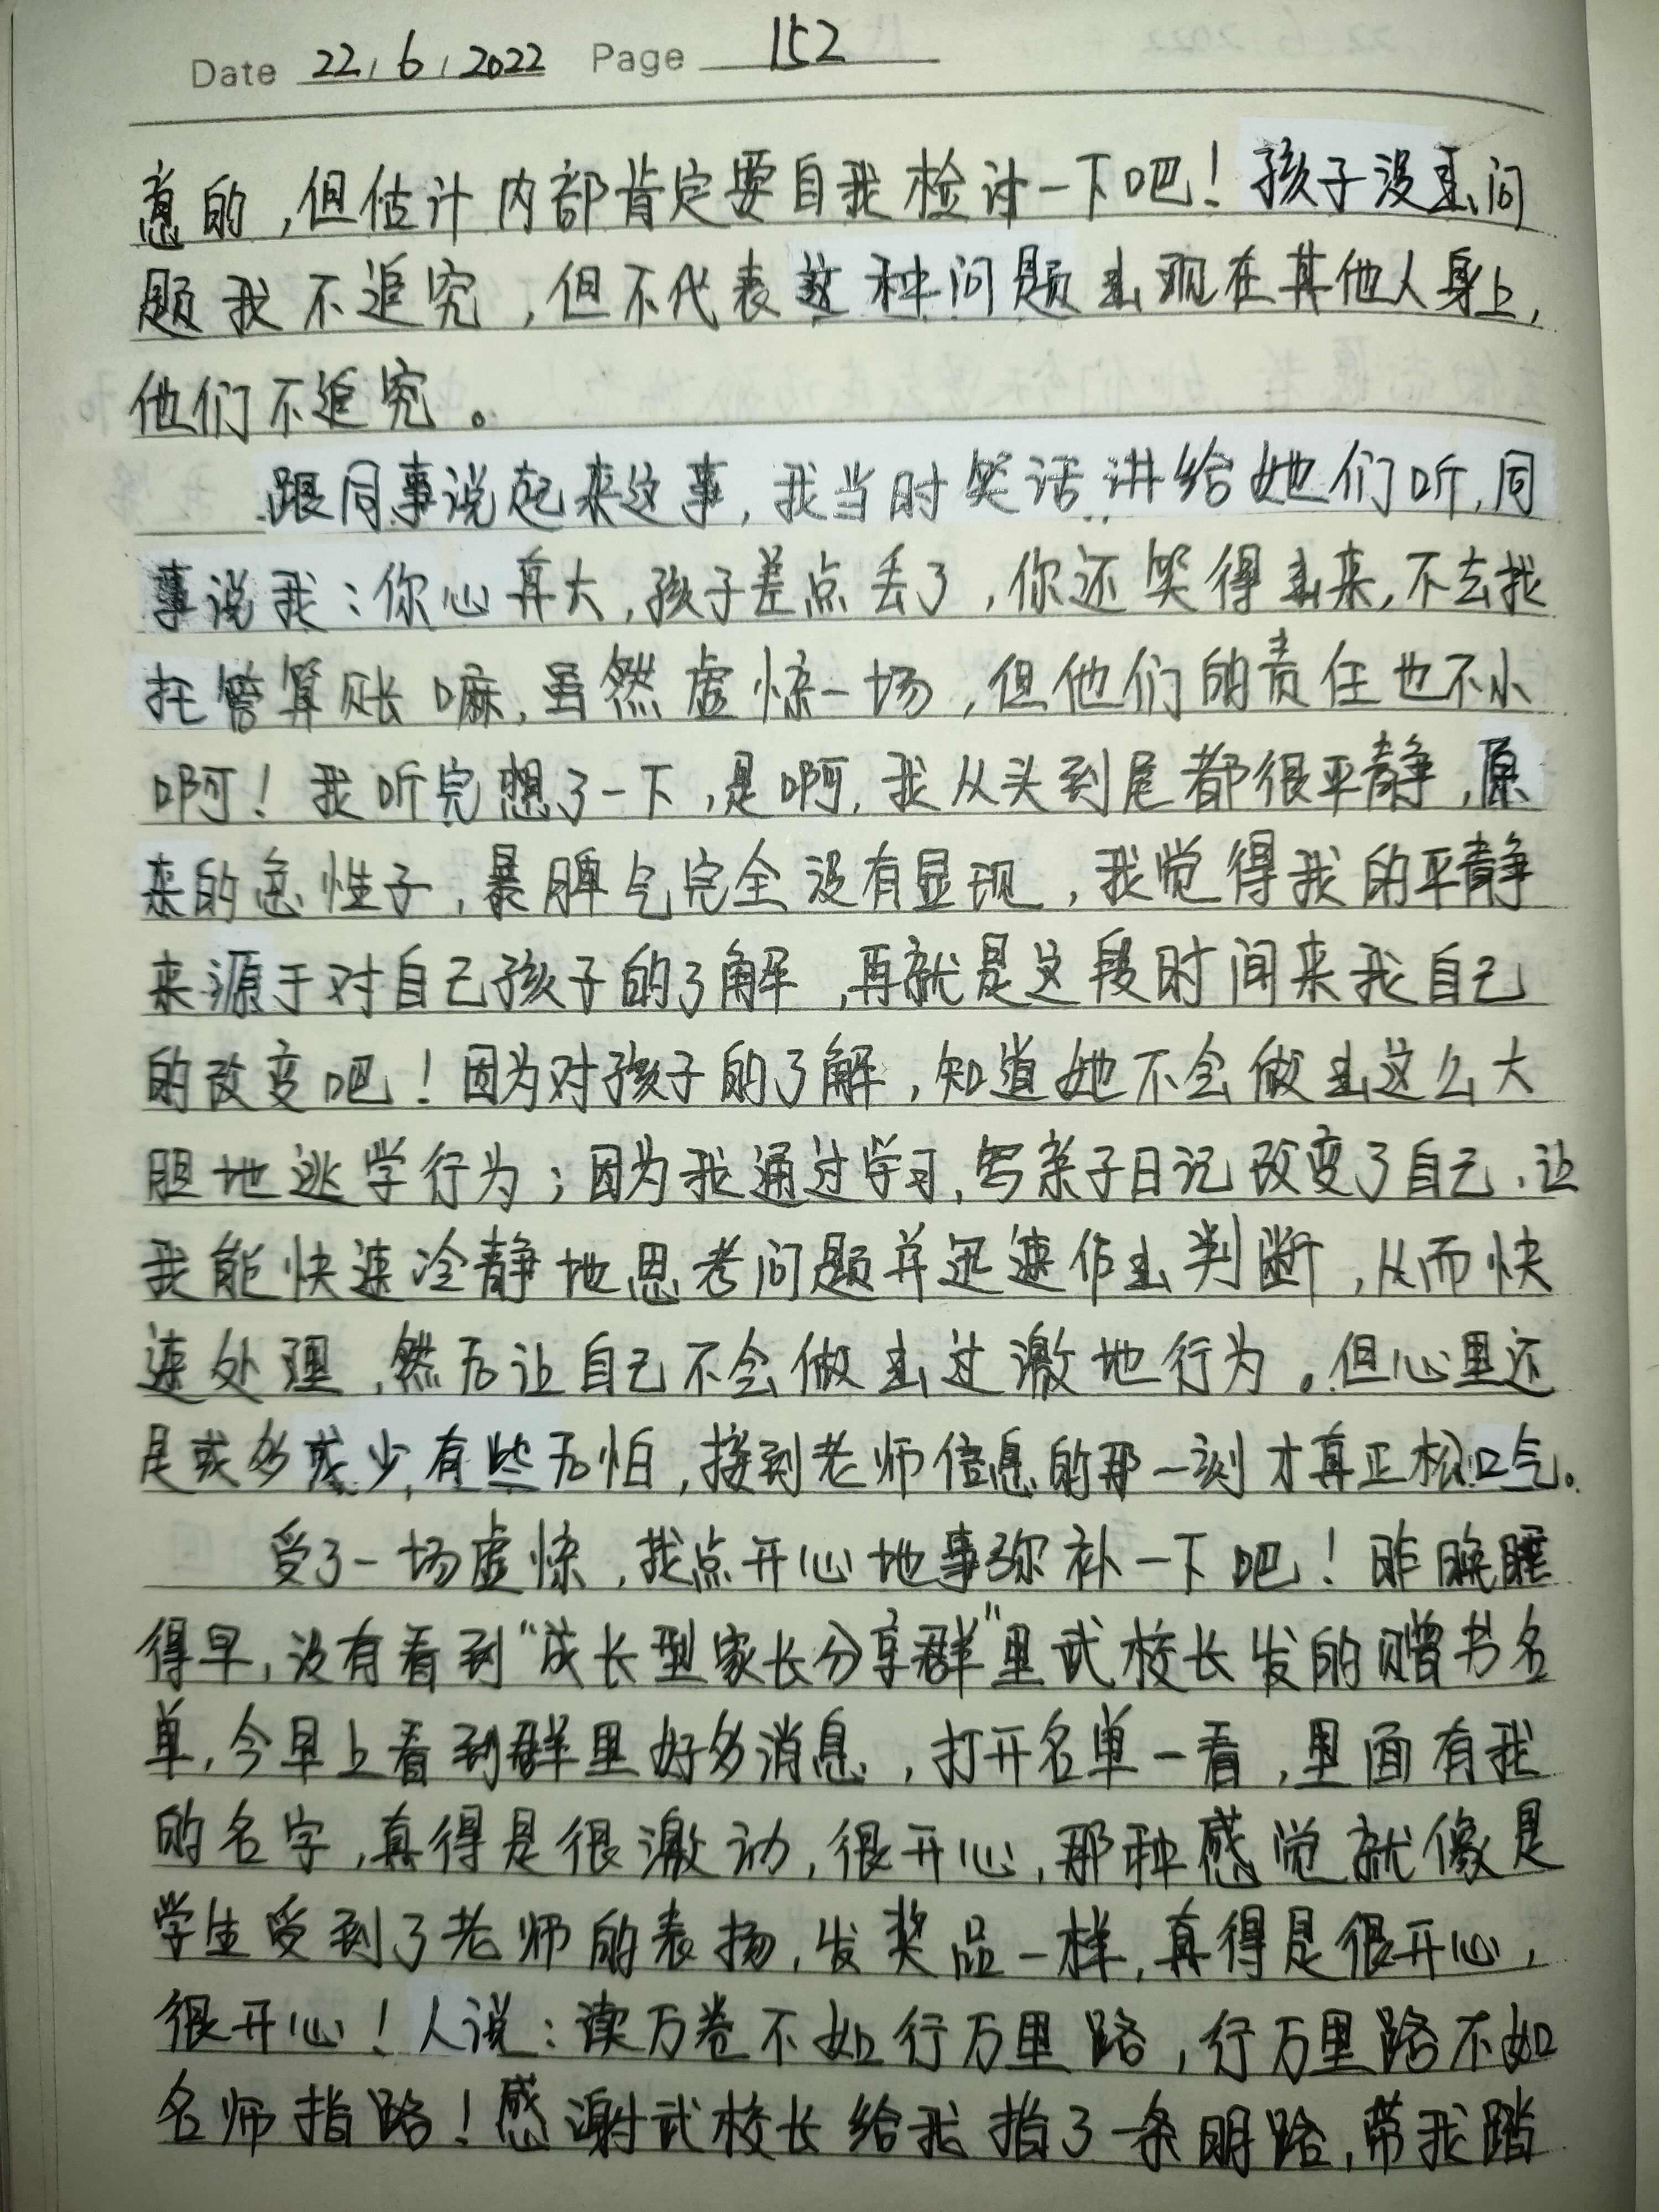 Date 22 / 6 / 2022 Page 152
意的，但估计内部肯定要自我检讨一下吧！孩子没出问
题我不追究，但不代表这种问题出现在其他人身上，
他们不追究。
跟同事说起来这事，我当时笑话讲给她们听，同
事说我：你心真大，孩子差点丢了，你还笑得出来，不去找
托管算账嘛，虽然虚惊一场，但他们的责任也不小
啊！我听完想了一下，是啊，我从头到尾都很平静，原
来的急性子，暴脾气完全没有显现，我觉得我的平静
来源于对自己孩子的了解，再就是这段时间来我自己
的改变吧！因为对孩子的了解，知道她不会做出这么大
胆地逃学行为；因为我通过学习，写亲子日记改变了自己，让
我能快速冷静地思考问题并迅速作出判断，从而快
速处理，然后让自己不会做出过激地行为。但心里还
是或多或少有些后怕，接到老师信息的那一刻才真正松口气。
受了一场虚惊，找点开心地事弥补一下吧！昨晚睡
得早，没有看到“成长型家长分享群”里武校长发的赠书名
单，今早上看到群里好多消息，打开名单一看，里面有我
的名字，真得是很激动，很开心，那种感觉就像是
学生受到了老师的表扬，发奖品一样，真得是很开心，
很开心！人说：读万卷不如行万里路，行万里路不如
名师指路！感谢武校长给我指了一条明路，带我踏